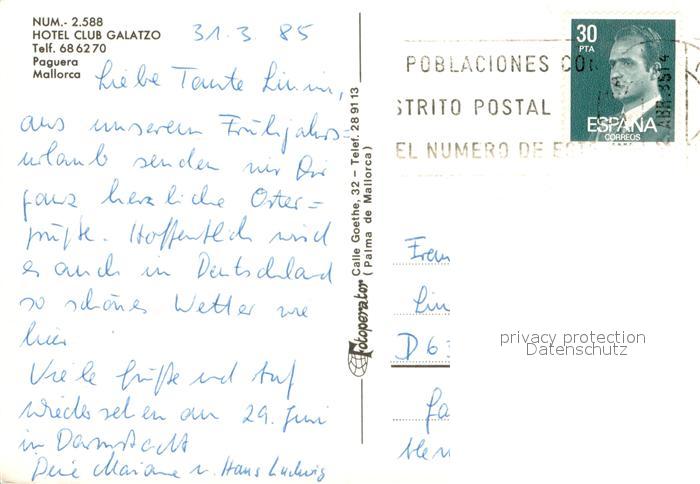 NUM.- 2.588
HOTEL CLUB GALATZO
Telf. 686270
Paguera
Mallorca
31.3 85
Liebe Tante Linni,
aus unserem Frühjahrs=
urlaub senden wir Dir
ganz herzliche Oster=
grüße. Hoffentlich wird
es auch in Deutschland
so schönes Wetter wie
hier.
Viele Grüße und Auf
Wiedersehen am 29. Juni
in Darmstadt
Deine Mariane u. Hans Ludwig
Fotoperator Calle Goethe, 32 – Telef. 28 91 13
(Palma de Mallorca)
POBLACIONES CO
STRITO POSTAL
EL NUMERO DE EST
30
PTA
ESPAÑA
CORREOS
Frau
Lin
D 63
privacy protection
Datenschutz